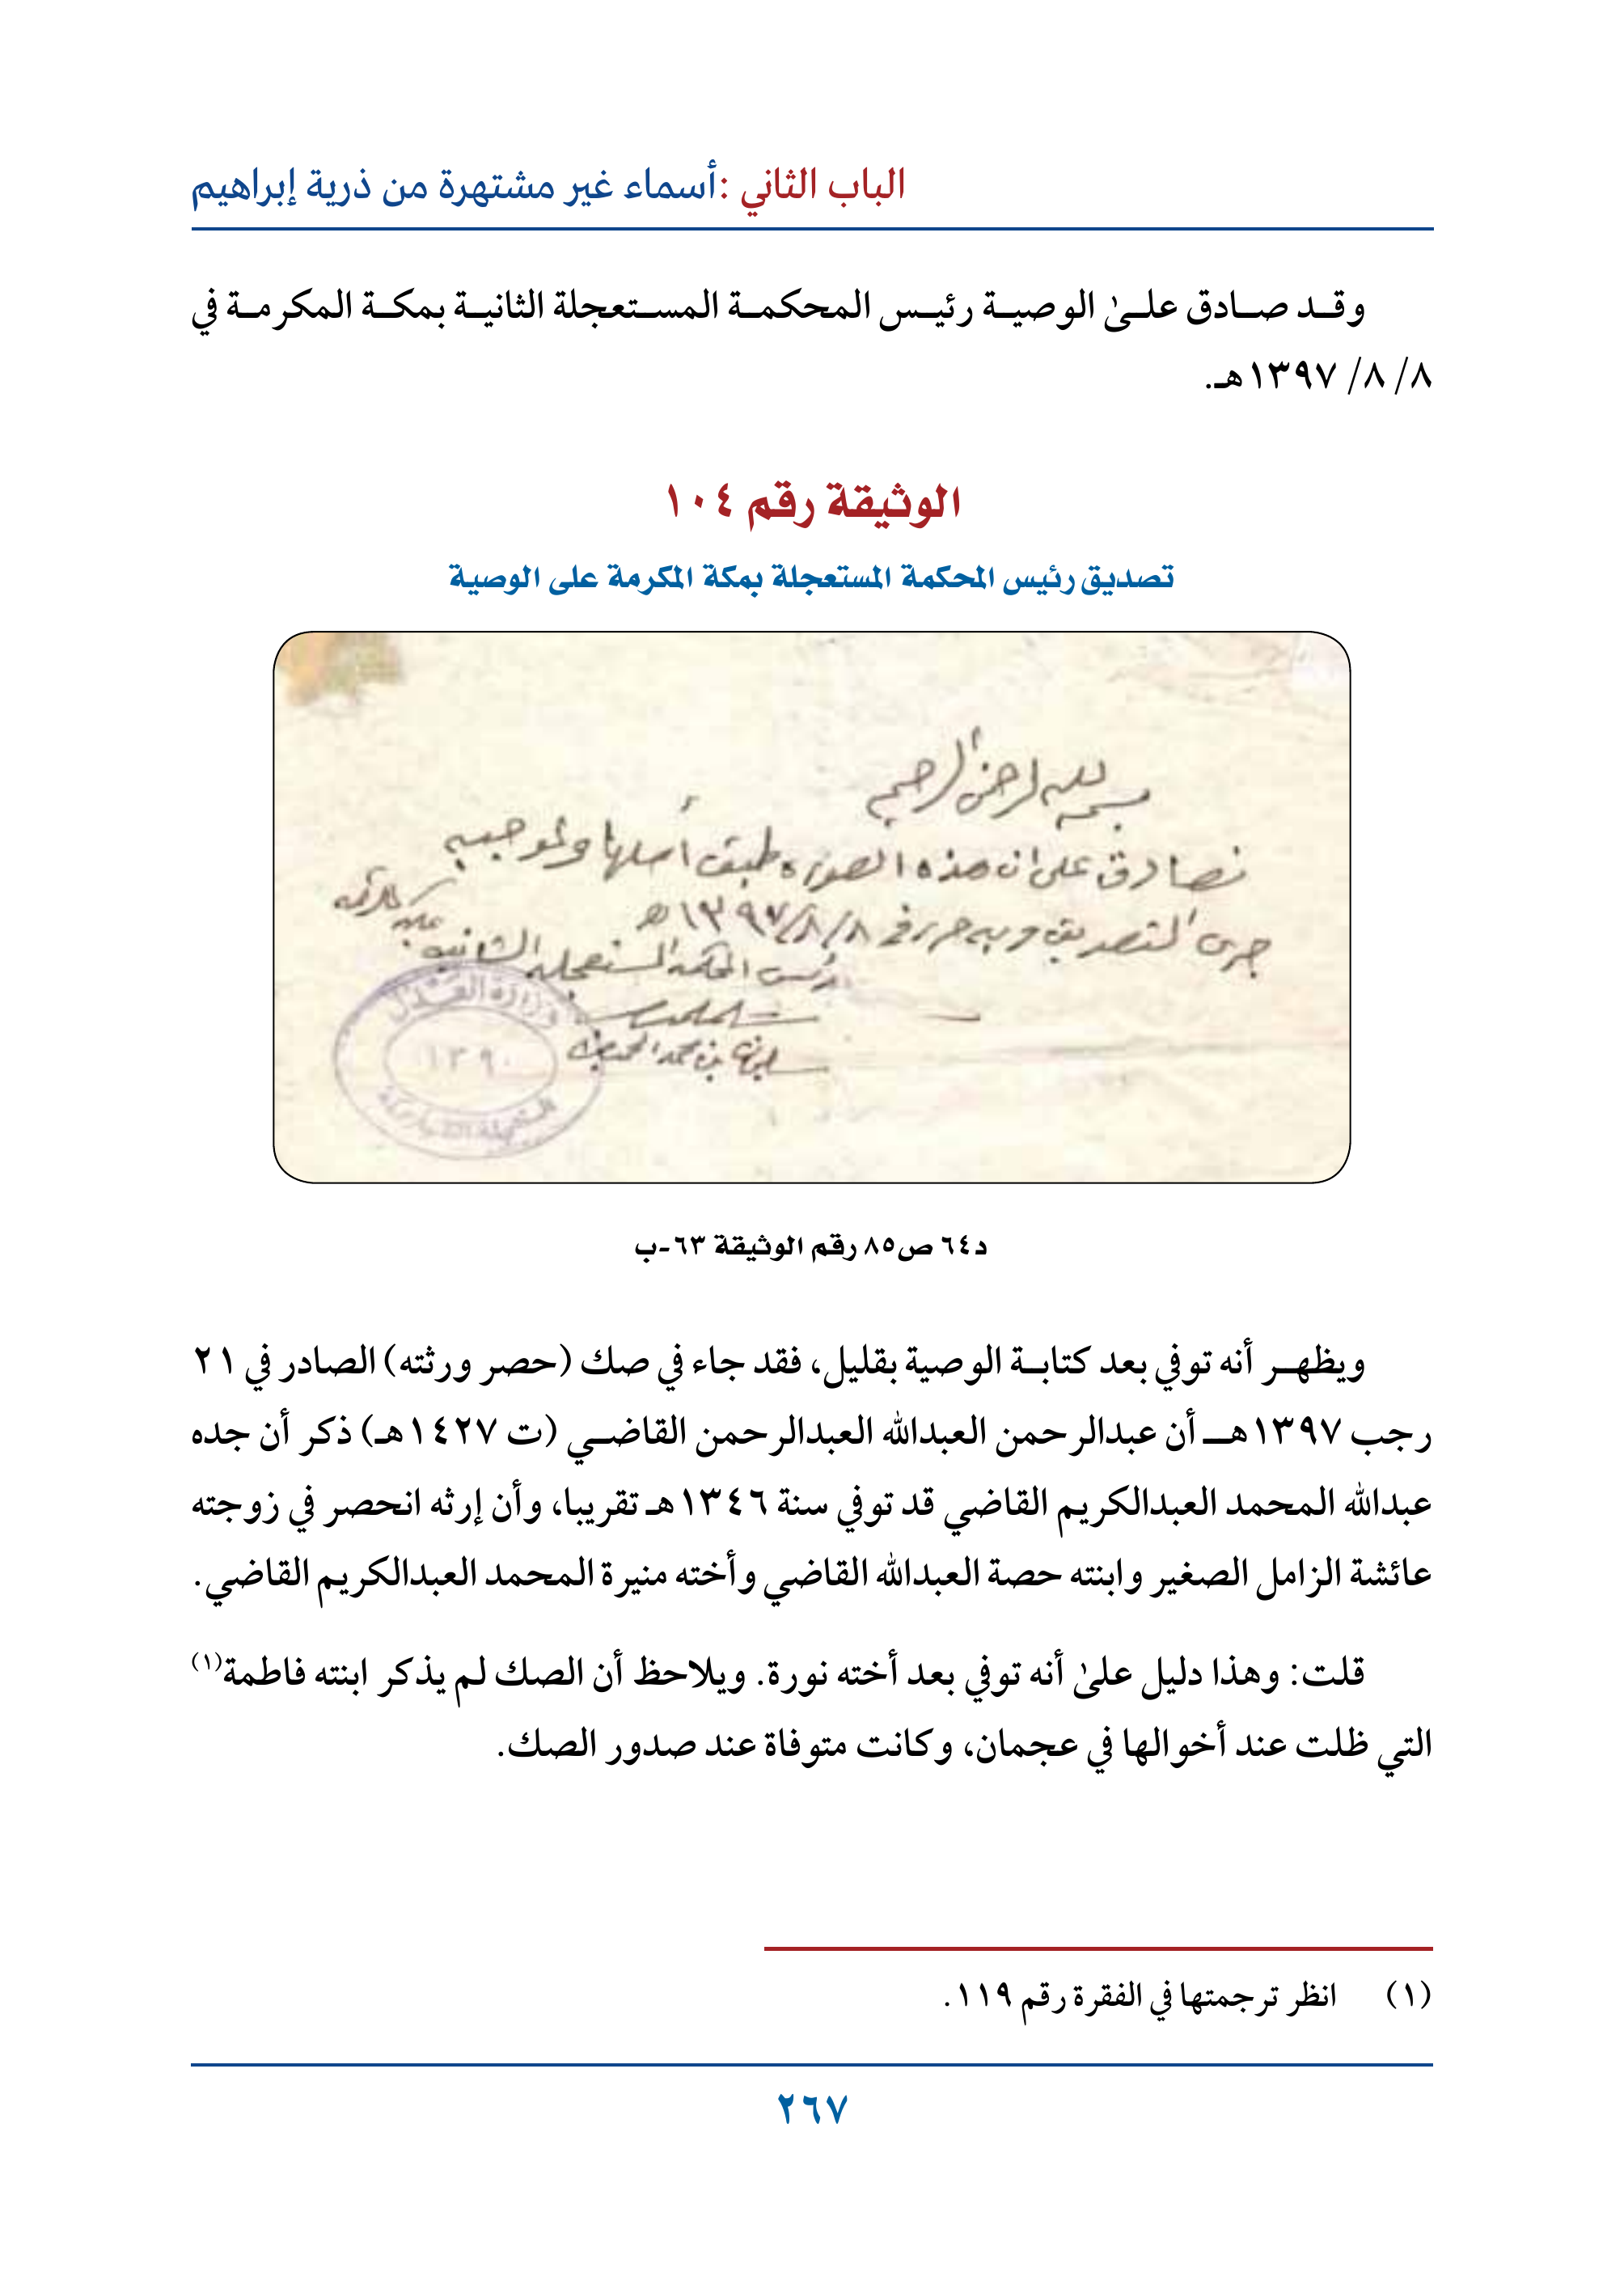 الباب الثاني :أسماء غير مشتهرة من ذرية إبراهيم
وقد صادق علىٰ الوصية رئيس المحكمة المستعجلة الثانية بمكة المكرمة في
٨/ ٨/ ١٣٩٧هـ.
الوثيقة رقم ١٠٤
تصديق رئيس المحكمة المستعجلة بمكة المكرمة على الوصية
بسم الله الرحمن الرحيم
نصادق على ان هذه الصوره طبق أصلها ولموجبه
جرى التصديق وبه حرر في ٨/٨/١٣٩٧هـ
رئيس المحكمة المستعجلة الثانية
بمكة المكرمة
سليمان بن محمد
وزارة العدل
١٣٩٠
د٦٤ ص٨٥ رقم الوثيقة ٦٣-ب
ويظهر أنه توفي بعد كتابة الوصية بقليل، فقد جاء في صك (حصر ورثته) الصادر في ٢١
رجب ١٣٩٧هـ أن عبدالرحمن العبدالله العبدالرحمن القاضي (ت ١٤٢٧هـ) ذكر أن جده
عبدالله المحمد العبدالكريم القاضي قد توفي سنة ١٣٤٦هـ تقريبا، وأن إرثه انحصر في زوجته
عائشة الزامل الصغير وابنته حصة العبدالله القاضي وأخته منيرة المحمد العبدالكريم القاضي.
قلت: وهذا دليل علىٰ أنه توفي بعد أخته نورة. ويلاحظ أن الصك لم يذكر ابنته فاطمة(١)
التي ظلت عند أخوالها في عجمان، وكانت متوفاة عند صدور الصك.
(١) انظر ترجمتها في الفقرة رقم ١١٩.
٢٦٧